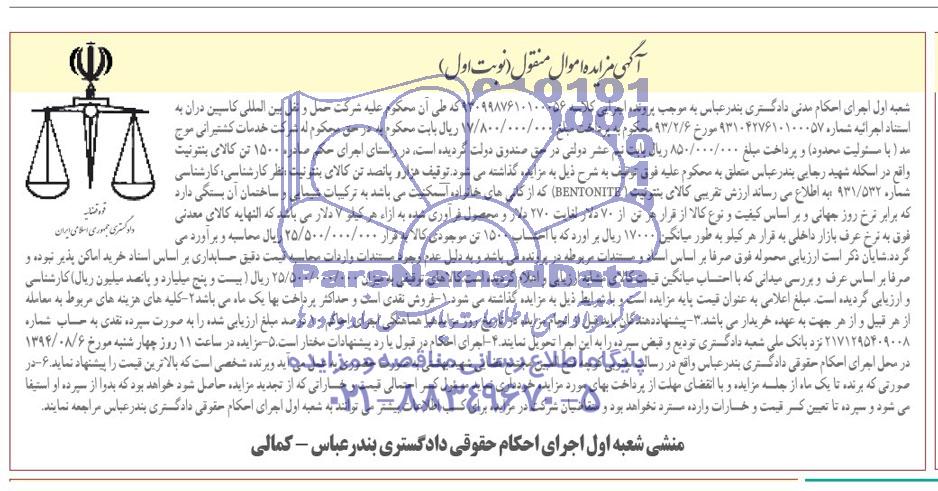 آگهی مزایده اموال منقول (نوبت اول)
قوه قضائیه
دادگستری جمهوری اسلامی ایران
شعبه اول اجرای احکام مدنی دادگستری بندرعباس به موجب پرونده اجرایی کلاسه که طی آن محکوم علیه شرکت حمل و نقل بین المللی کاسپین دران به
استناد اجرائیه شماره ۹۳۱۰۴۲۷۶۱۰۱۰۰۰۵۷ مورخ ۹۳/۲/۶ محکوم به پرداخت مبلغ ۱۷/۸۰۰/۰۰۰/۰۰۰ ریال بابت محکوم به در حق محکوم له شرکت خدمات کشتیرانی موج
مد (با مسئولیت محدود) و پرداخت مبلغ ۸۵۰/۰۰۰/۰۰۰ ریال بابت نیم عشر دولتی در حق صندوق دولت گردیده است، در راستای اجرای حکم صادره ۱۵۰۰ تن کالای بنتونیت
واقع در اسکله شهید رجایی بندرعباس متعلق به محکوم علیه فوق توقیف به شرح ذیل به مزایده گذاشته می شود. توقیف هزار و پانصد تن کالای بنتونیت نظر کارشناسی: کارشناسی
شماره ۹۳۱/۵۳۲ :به اطلاع می رساند ارزش تقریبی کالای بنتونیت (BENTONITE) که از کانی های خانواده اسمکتیت می باشد به ترکیبات شیمیایی و ساختمان آن بستگی دارد
که برابر نرخ روز جهانی و بر اساس کیفیت و نوع کالا از قرار هر تن از ۷۰ دلار لغایت ۲۷۰ دلار و محصول فرآوری شده به ازاء هر کیلو ۷ دلار می باشد که النهایه کالای معدنی
فوق به نرخ عرف بازار داخلی به قرار هر کیلو به طور میانگین ۱۷۰۰۰ ریال بر اورد که با احتساب ۱۵۰۰ تن موجودی کالا به قرار ۲۵/۵۰۰/۰۰۰/۰۰۰ ریال محاسبه و برآورد می
گردد. شایان ذکر است ارزیابی محموله فوق صرفا بر اساس و مستندات مربوطه در پرونده می باشد و به دلیل عدم وجود مستندات واردات محاسبه قیمت دقیق حسابداری بر اساس اسناد خرید اماکن پذیر نبوده و
صرفا بر اساس عرف و بررسی میدانی که با احتساب میانگین قیمت کالای مشابه ارزیابی و اعلام گردیده است کالاهای توقیفی به میزان ۲۵/۵۰۰/۰۰۰/۰۰۰ ریال (بیست و پنج میلیارد و پانصد میلیون ریال) کارشناسی
و ارزیابی گردیده است. مبلغ اعلامی به عنوان قیمت پایه مزایده است و با شرایط ذیل به مزایده گذاشته می شود. ۱-فروش نقدی است و حداکثر پرداخت بها یک ماه می باشد ۲-کلیه های هزینه های مربوط به معامله
از هر قبیل و از هر جهت به عهده خریدار می باشد. ۳-پیشنهاددهندگان باید قبل از انجام مزایده در تاریخ روز مزایده با هماهنگی اجرای احکام درصد مبلغ ارزیابی شده را به صورت سپرده نقدی به حساب شماره
۲۱۷۱۲۹۵۴۰۹۰۰۸ نزد بانک ملی شعبه دادگستری تودیع و قبض سپرده را به این اجرا تحویل نمایند. ۴-اجرای احکام در قبول یا رد پیشنهادات مختار است. ۵-مزایده در ساعت ۱۱ روز چهار شنبه مورخ ۱۳۹۴/۰۸/۶
در محل اجرای احکام حقوقی دادگستری بندرعباس واقع در رسالت برنده شخصی است که بالاترین قیمت را پیشنهاد نماید. ۶-در
صورتی که برنده تا یک ماه از جلسه مزایده و با انقضای مهلت از پرداخت بهای مورد مزایده خودداری نماید مسئول کسر احتمالی قیمت و خساراتی که از تجدید مزایده حاصل شود خواهد بود که بدوا از سپرده او استیفا
می شود و سپرده تا تعیین کسر قیمت و خسارات وارده مسترد نخواهد بود و متقاضیان شرکت در مزایده برای کسب اطلاعات بیشتر می توانند به شعبه اول اجرای احکام حقوقی دادگستری بندرعباس مراجعه نمایند.
منشی شعبه اول اجرای احکام حقوقی دادگستری بندرعباس – کمالی
ParsNamadData
پایگاه اطلاع رسانی مناقصه و مزایده
۰۲۱-۸۸۳۴۹۶۷۰-۵